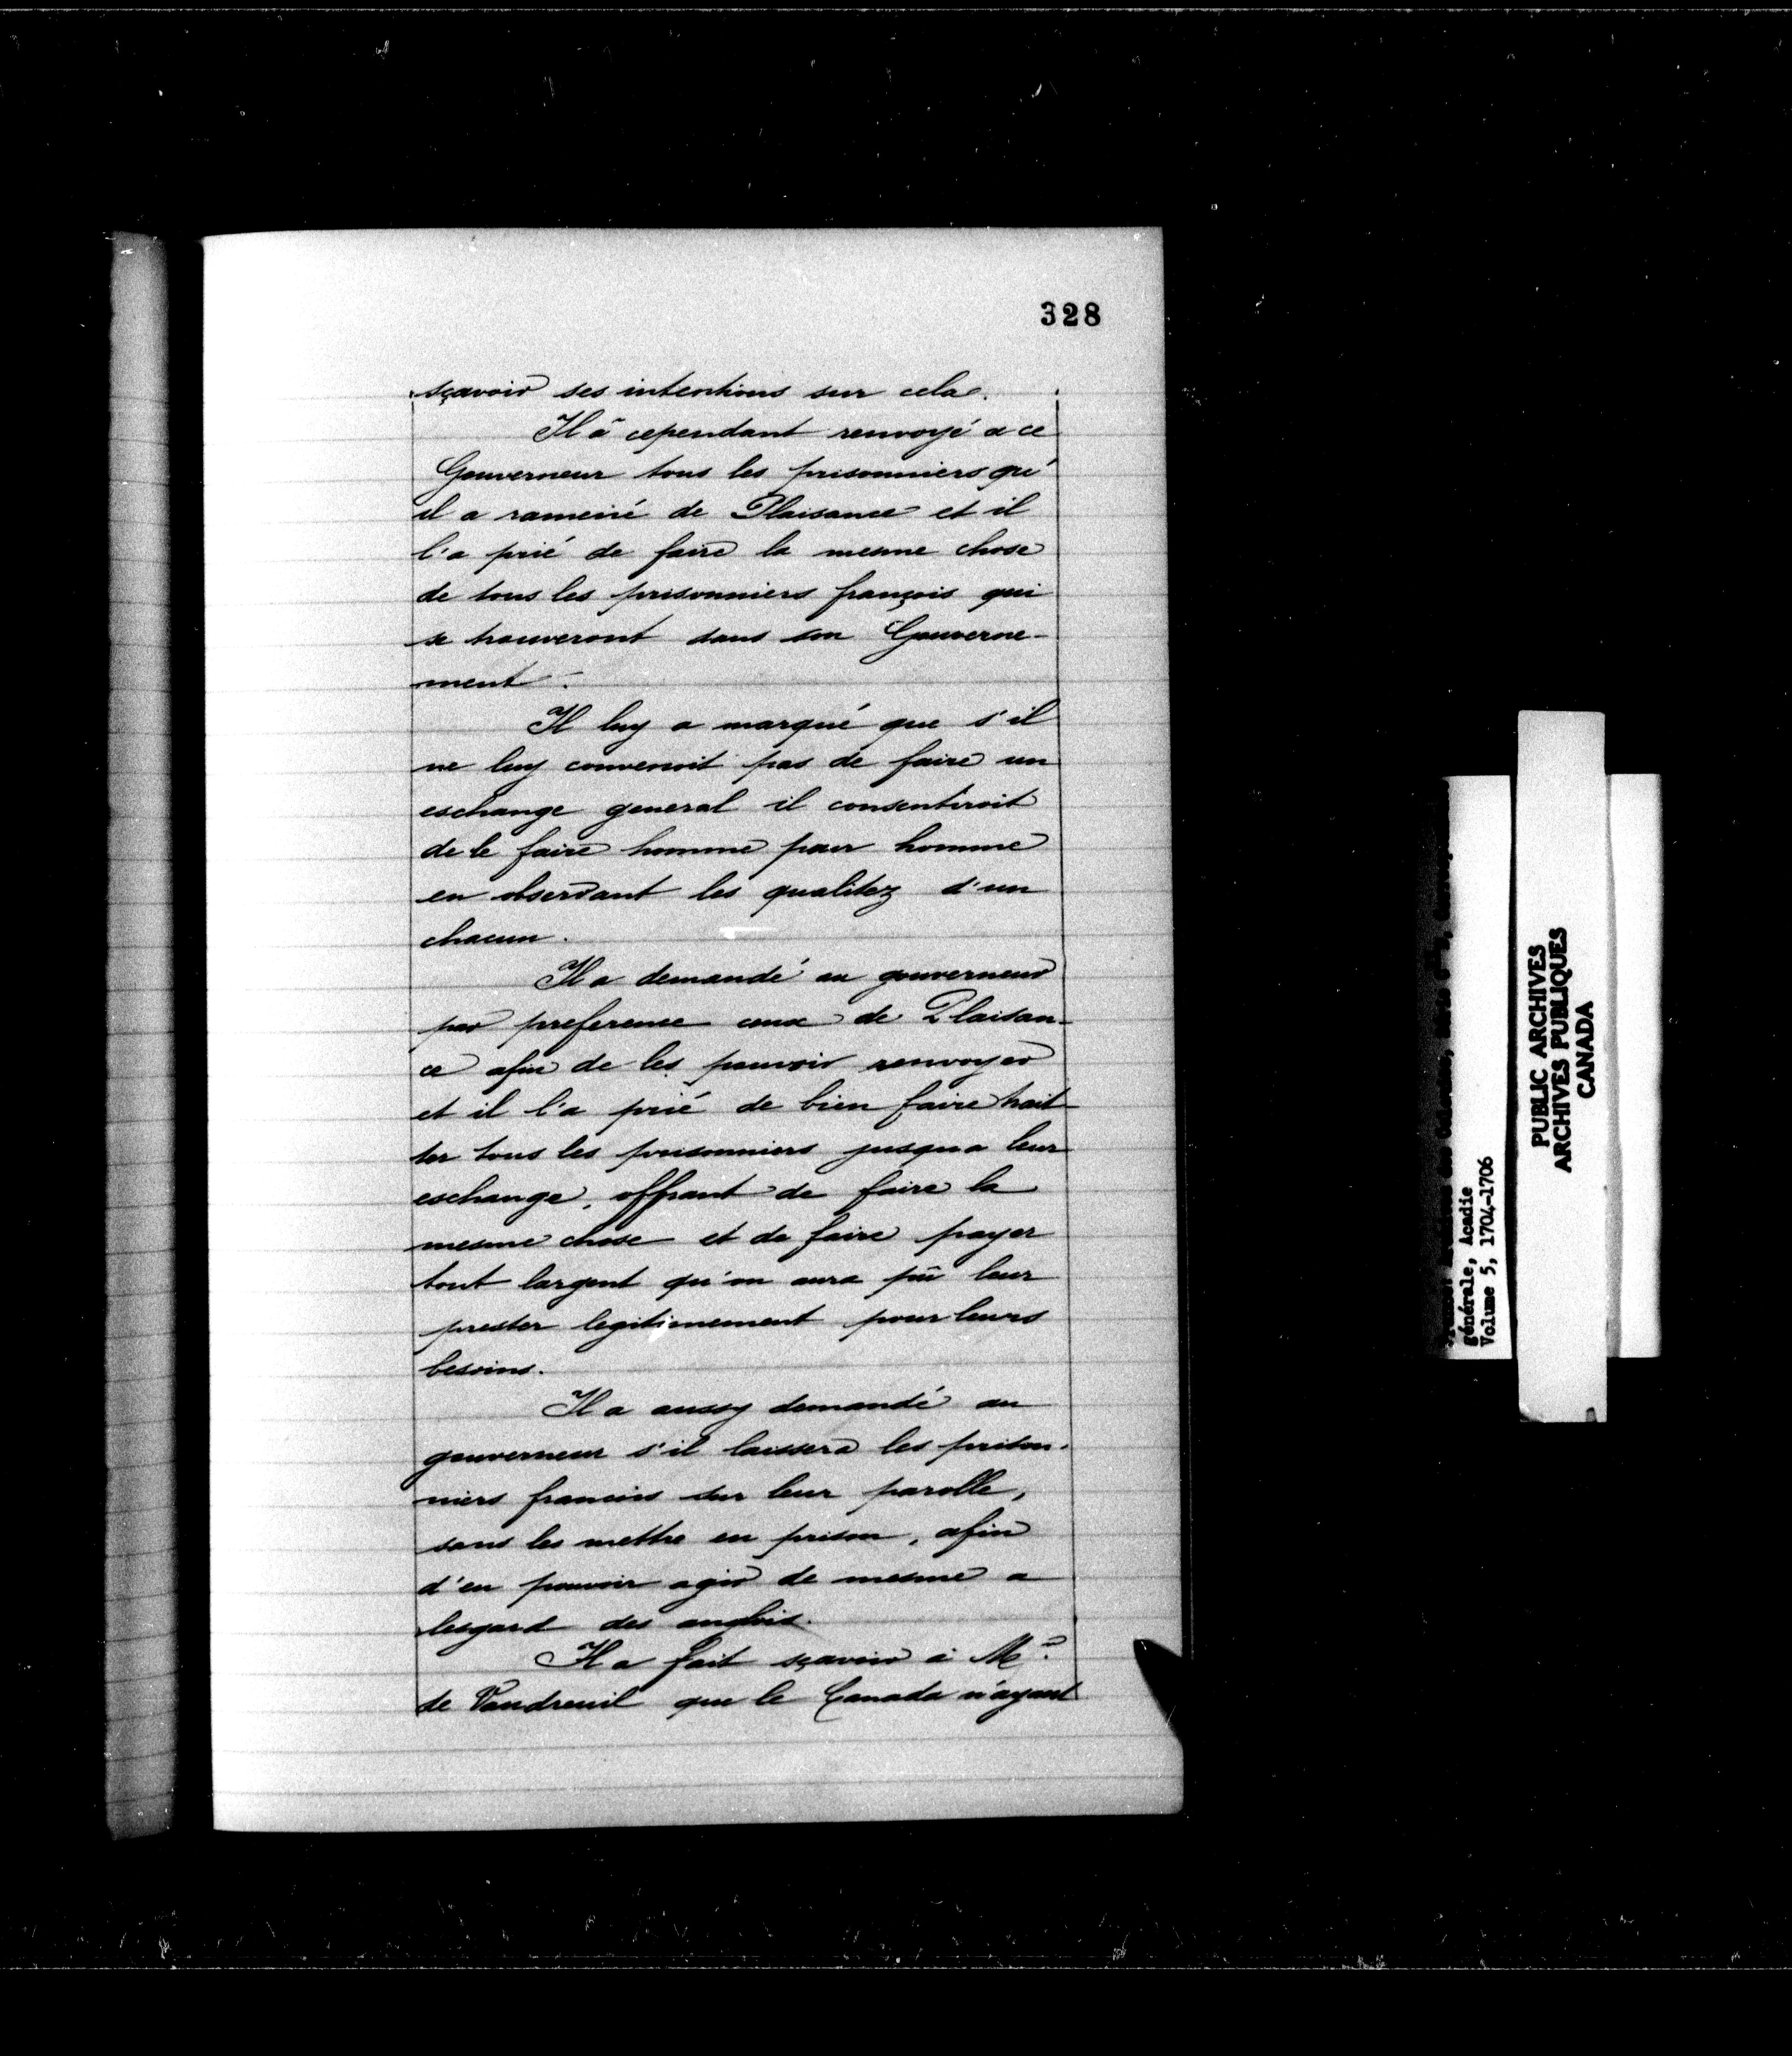 328
sçavoir ses intentions sur cela.
Il â cependant renvoyé a ce
Gouverneur tous les prisonniers qu'
il a ramené de Plaisance et il
l'a prié de faire la mesme chose
de tous les prisonniers françois qui
se trouveront dans son Gouverne-
ment.
Il luy a marqué que s'il
ne luy convenoit pas de faire un
eschange general il consentiroit
de le faire homme pour homme
en observant les qualitez d'un
chacun.
Il a demandé au gouverneur
par preference ceux de Plaisan-
ce afin de les pouvoir renvoyer
et il l'a prié de bien faire trait-
ter tous les prisonniers jusqua leur
eschange, offrant de faire la
mesme chose et de faire payer
tout largent qu'on aura pû leur
prester legitimement pour leurs
besoins.
Il a aussy demandé au
gouverneur s'il laissera les prison-
niers francois sur leur parolle,
sans les mettre en prison, afin
d'en pouvoir agir de mesme a
lesgard des anglois.
Il a fait sçavoir à Mr.
de Vaudreuil que le Canada n'ayant
générale, Acadie
Volume 5, 1704-1706
PUBLIC ARCHIVES
ARCHIVES PUBLIQUES
CANADA